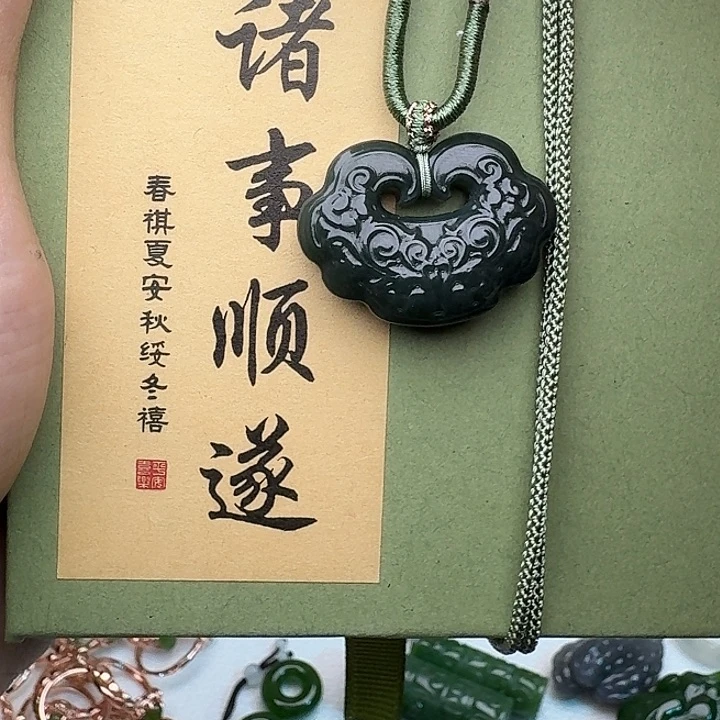 诸事顺遂
春祺夏安秋绥冬禧